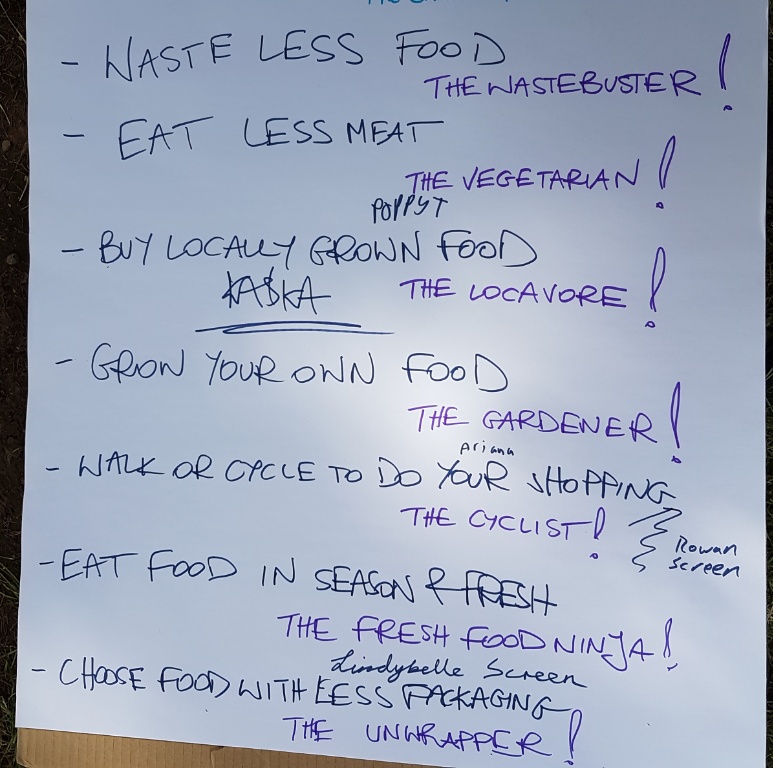 - WASTE LESS FOOD
THE WASTEBUSTER!
- EAT LESS MEAT
THE VEGETARIAN!
POPPYT
- BUY LOCALLY GROWN FOOD
KASKA THE LOCAVORE!
- GROW YOUR OWN FOOD
THE GARDENER!
Ariana
- WALK OR CYCLE TO DO YOUR SHOPPING
THE CYCLIST!
Rowan
Screen
- EAT FOOD IN SEASON & FRESH
THE FRESH FOOD NINJA!
Lindybelle Screen
- CHOOSE FOOD WITH LESS PACKAGING
THE UNWRAPPER!